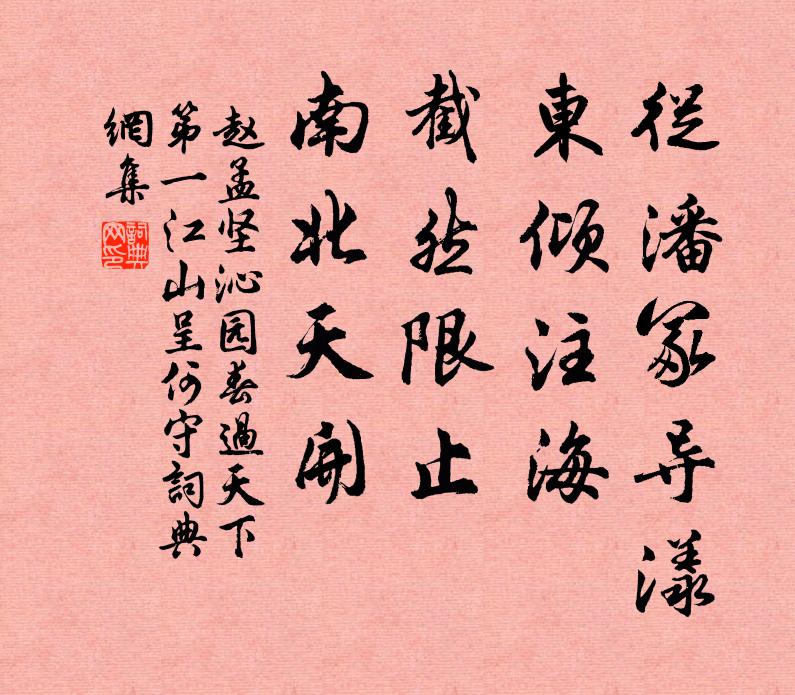 從潘冢导漾
東倾注海
截然限止
南北天開
赵孟坚沁园春過天下
第一江山呈何守詞典
網集
詞典
网印